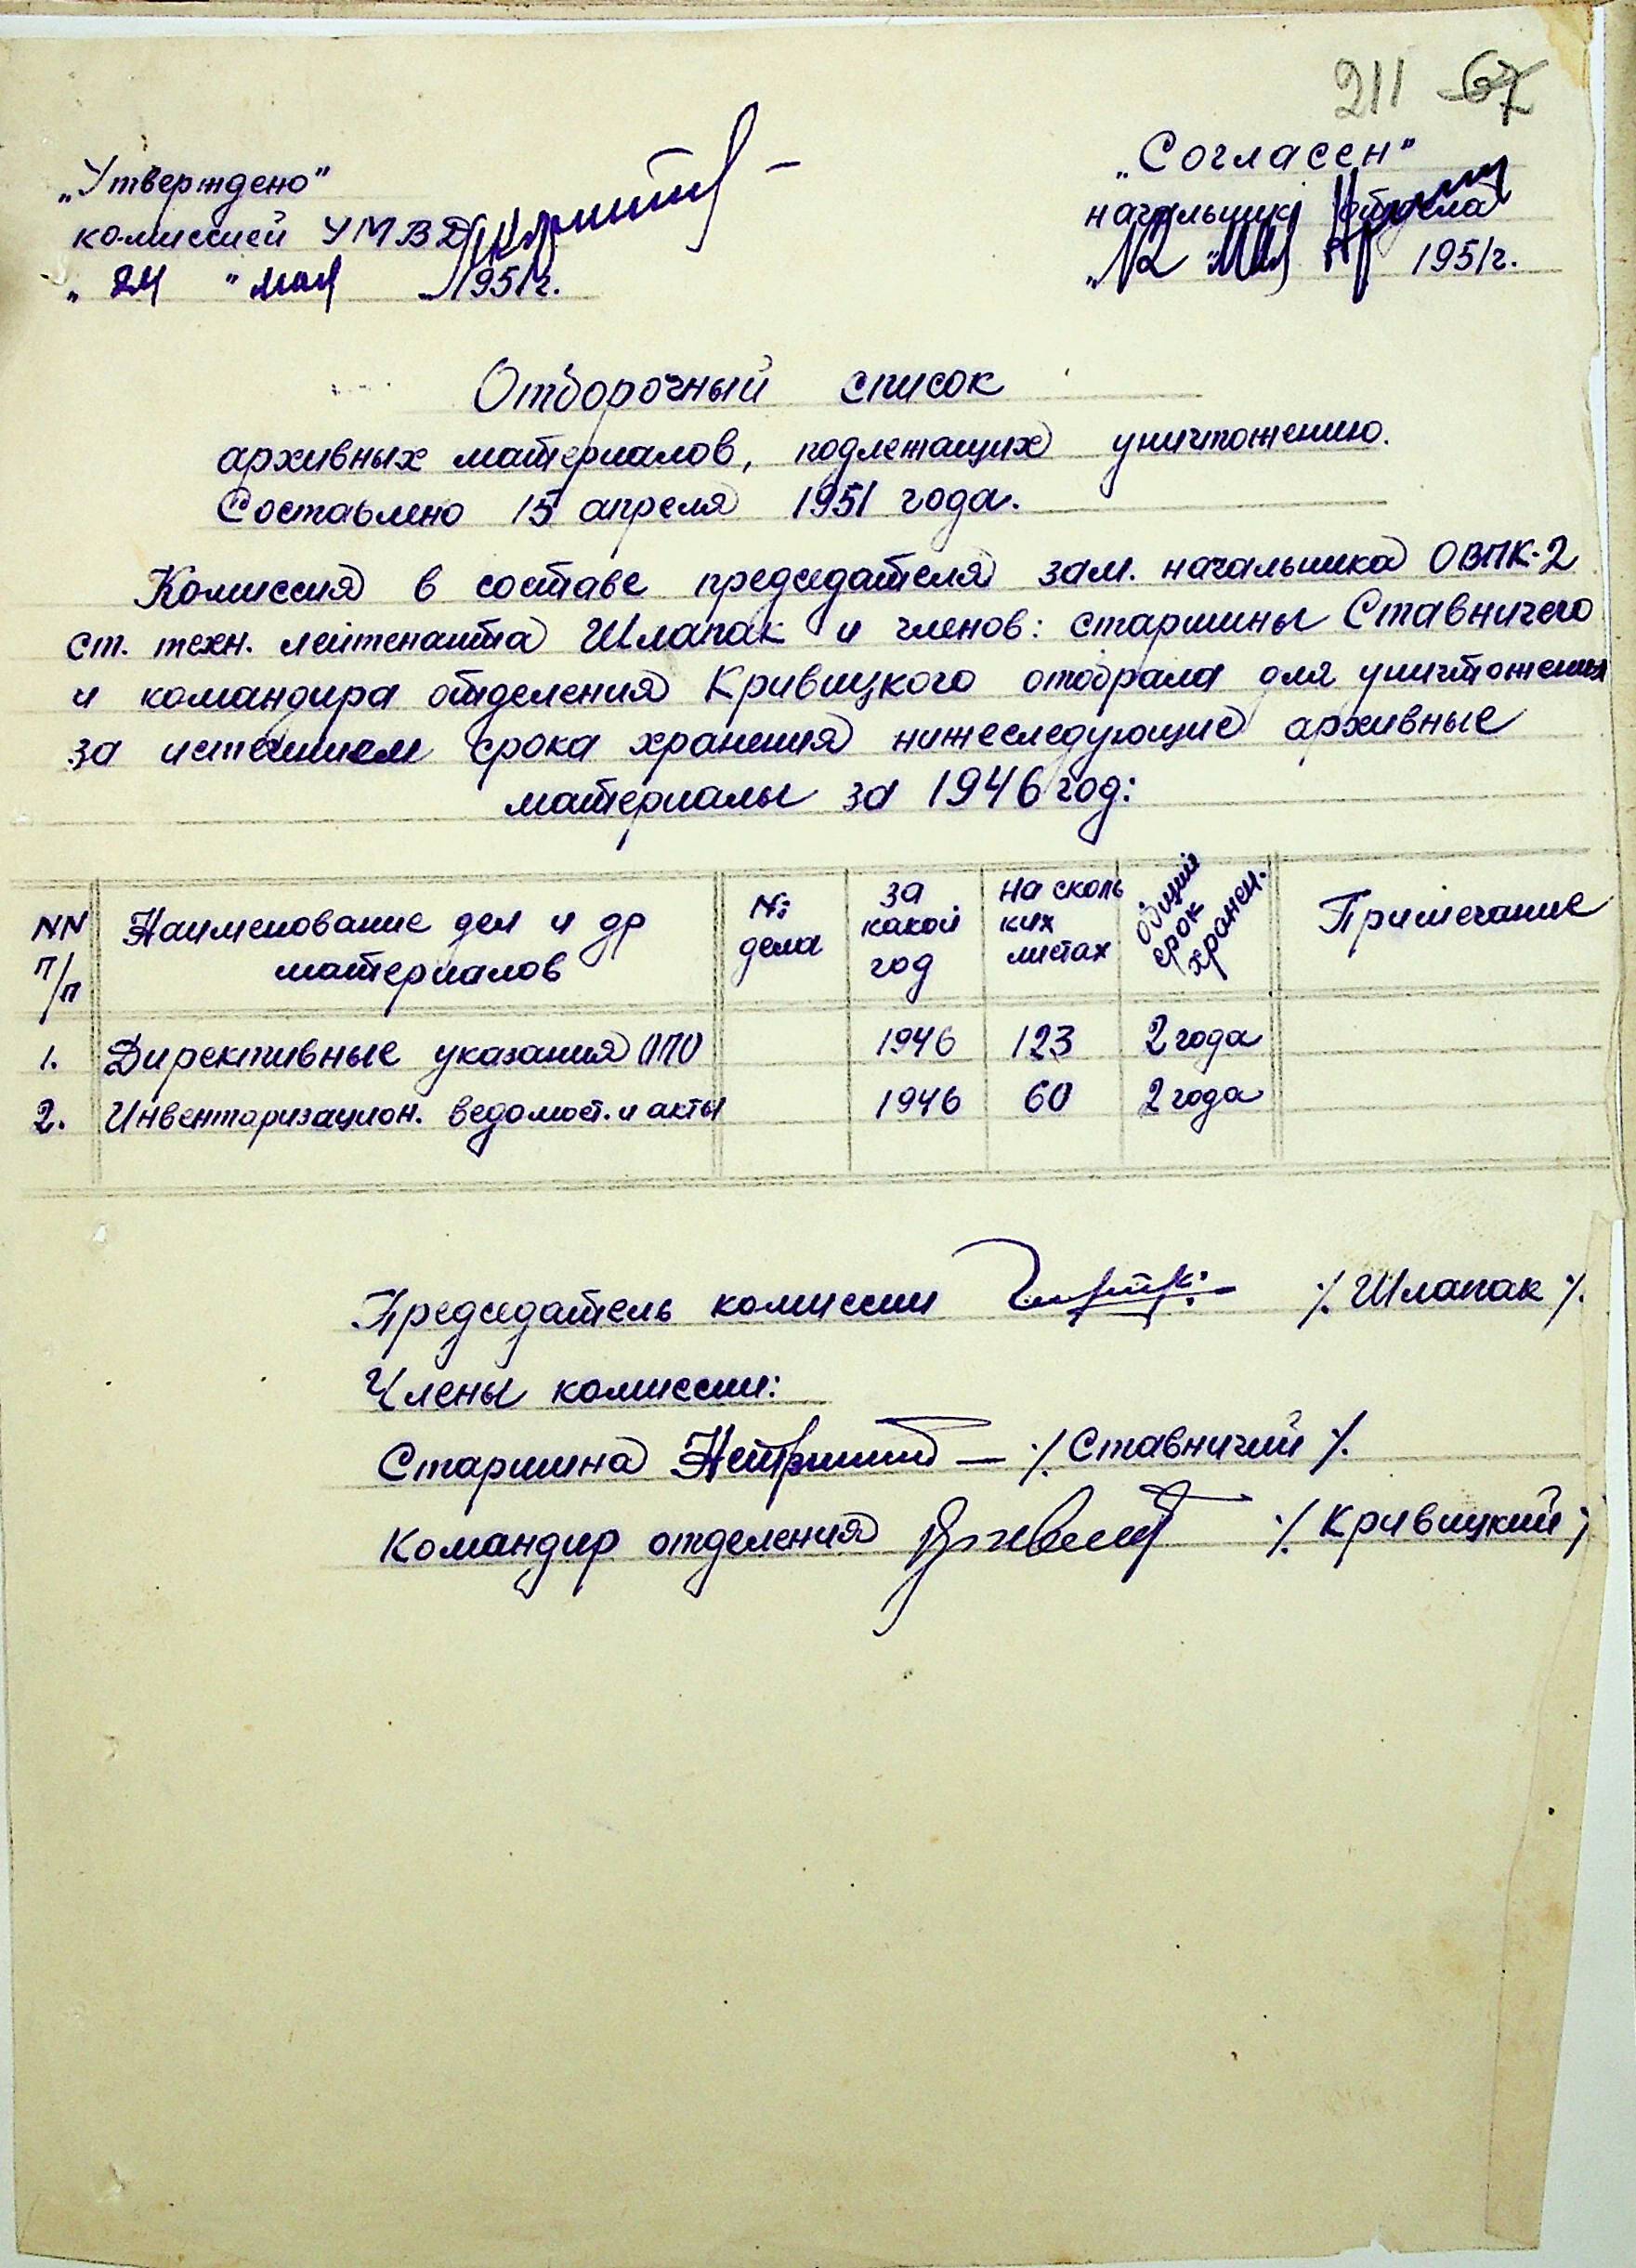 211 67
„Утверждено"
комиссией УМВД
„24 " мая 1951г.
„Согласен"
начальник отдела
„12 " мая 1951г.
Отборочный список
архивных материалов, подлежащих уничтожению.
Составлено 15 апреля 1951 года.
Комиссия в составе председателя зам. начальника ОВПК-2
ст. техн. лейтенанта Шлапак и членов: старшины Ставничего
и командира отделения Кривицкого отобрала для уничтожения
за истечением срока хранения нижеследующие архивные
материалы за 1946 год:
NN п/п Наименование дел и др материалов № дела за какой год на сколь ких листах общий срок хранен. Примечание
1. Директивные указания ОПО 1946 123 2 года
2. Инвентаризацион. ведомост. и акты 1946 60 2 года
Председатель комиссии ⁒ Шлапак ⁒
Члены комиссии:
Старшина — ⁒ Ставничий ⁒
Командир отделения ⁒ Кривицкий ⁒